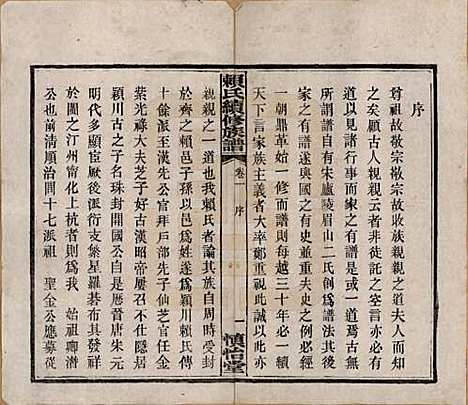 序
尊祖故敬宗敬宗故收族親親之道夫人而知
之矣顧古人親親云者非徒託之空言亦必有
道以見諸身行而家之有譜或一道焉或一道
所謂譜自有宋廬陵眉山二氏倒為譜法其後
家之有譜遂與國之有史例必夫史之例必經
一朝鼎革始一修而譜則每越三十年必一續
天下言家族主義者大率鄭重視此此亦
賴氏續修族譜
卷一 序
一
慎怡堂
親親之一道也我賴氏者論自周時受封
於齊之賴邑子孫以邑為姓遂為潁川賴氏傳
十餘派至漢先公官拜戶部先子仙芝官任金
紫光祿大夫芝子好古漢昭帝屢召不仕隱居
潁川古之子名珠封開國公自是厯晉唐宋元
明代多顯宦厥後派衍支繁星羅碁布其有支
於閩之汀州甯化上杭者則為我 始祖聊濟
公也前清順治間十七派祖 聖金公應募從